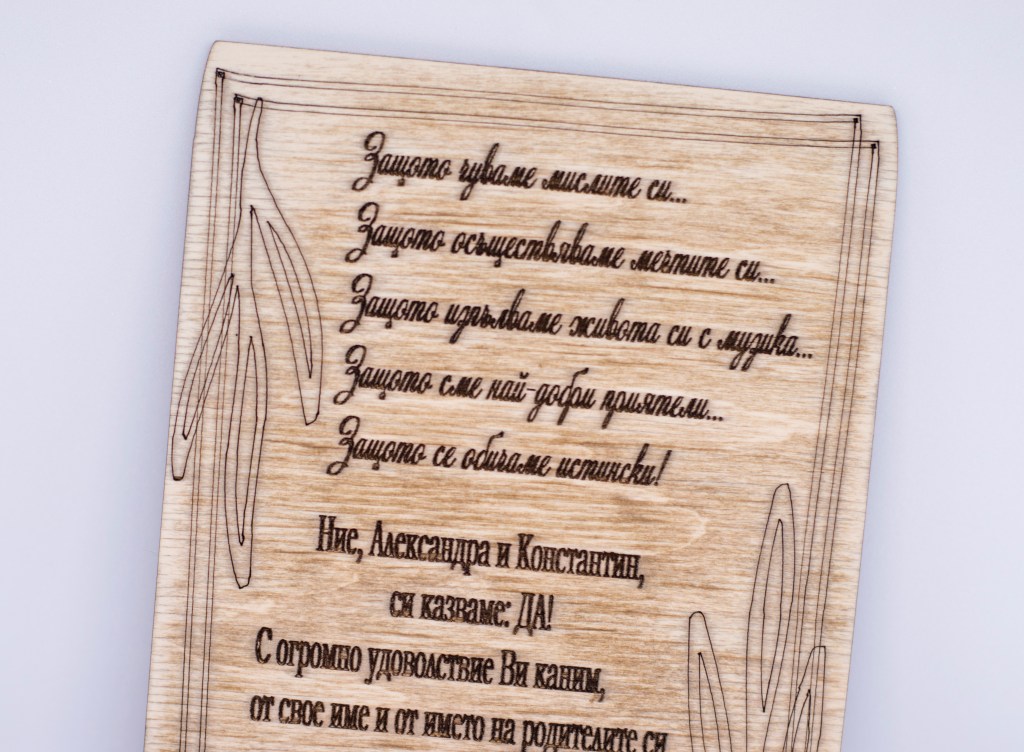 Защото чуваме мислите си...
Защото осъществяваме мечтите си...
Защото изпълваме живота си с музика...
Защото сме най-добри приятели...
Защото се обичаме истински!
Ние, Александра и Константин,
си казваме: ДА!
С огромно удоволствие Ви каним,
от свое име и от името на родителите си